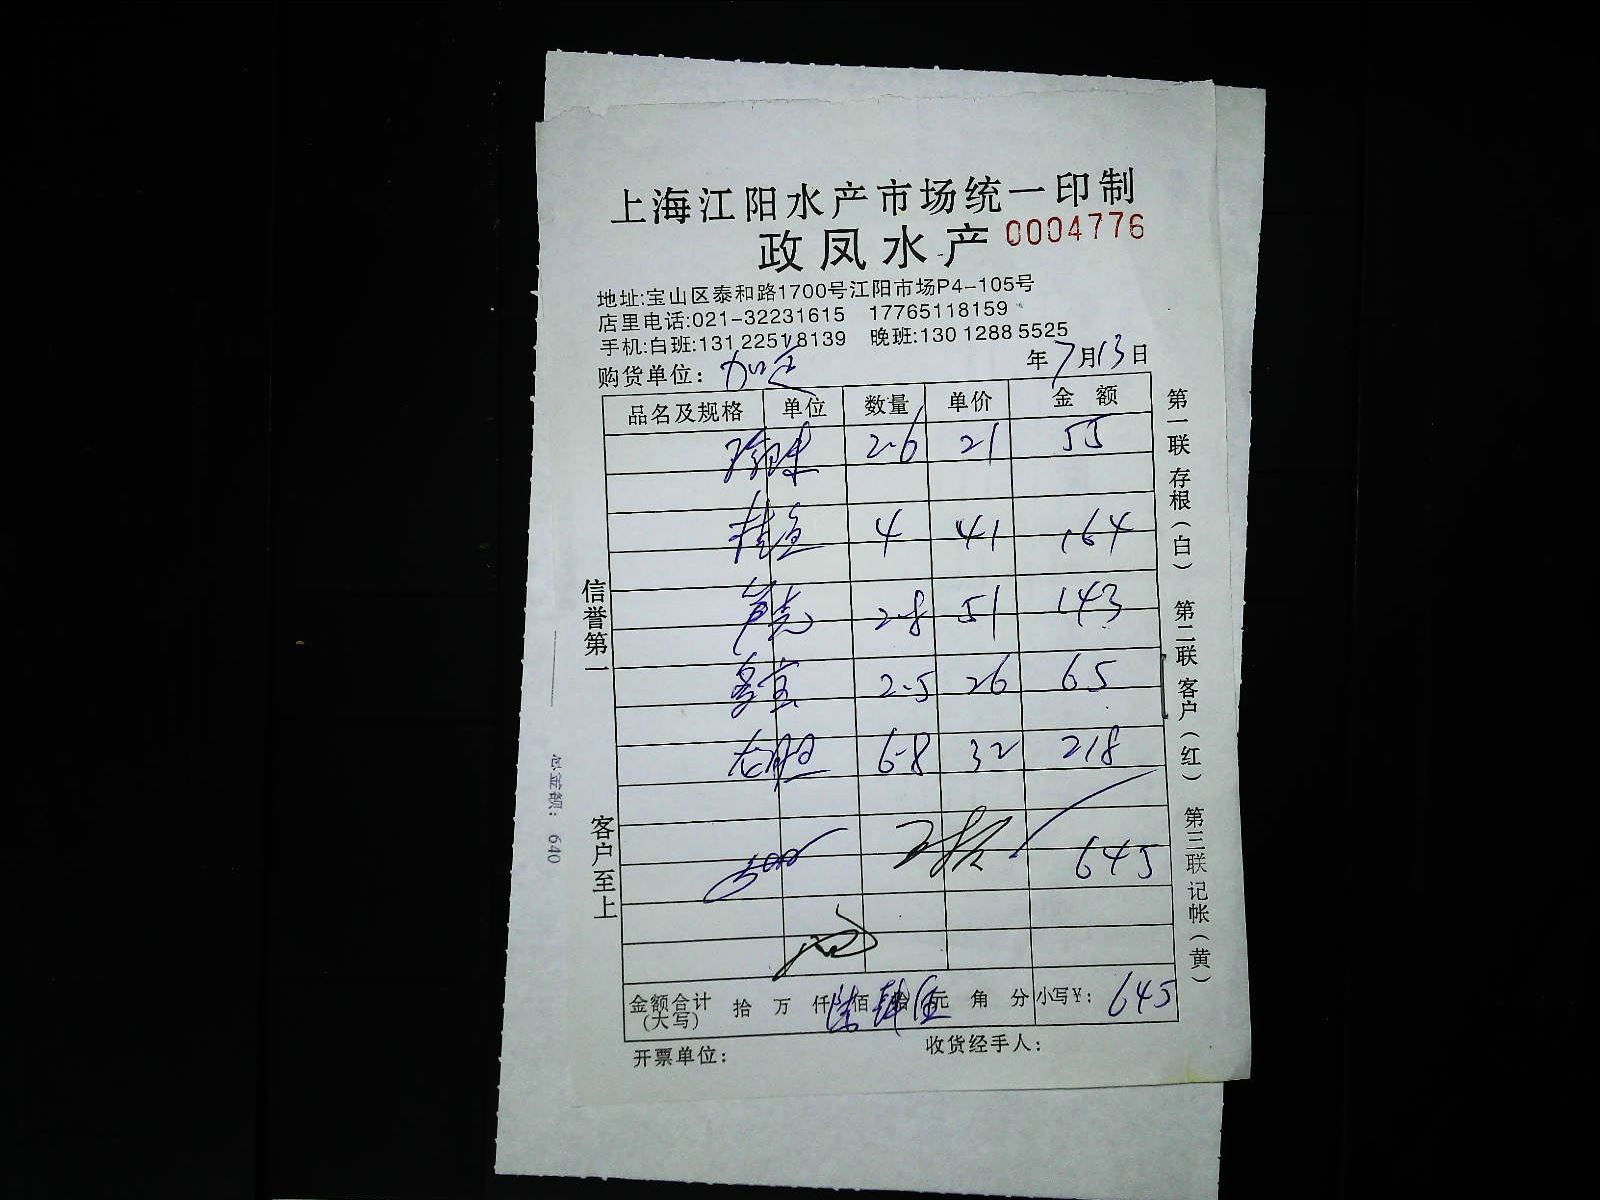 上海江阳水产市场统一印制
政凤水产 0004776
地址:宝山区泰和路1700号江阳市场P4-105号
店里电话:021-32231615 17765118159
手机:白班:131 2251 8139 晚班:130 1288 5525
购货单位: 年7月13日
品名及规格 单位 数量 单价 金额
2-6 21 55
桂鱼 4 41 164
2-8 51 143
多宝 2-5 26 65
龙胆 6-8 32 218
645
金额合计(大写) 拾 万 仟 佰 拾 元 角 分 小写¥: 645
开票单位: 收货经手人:
信誉第一
客户至上
第一联 存根(白) 第二联 客户(红) 第三联 记帐(黄)
总金额: 640